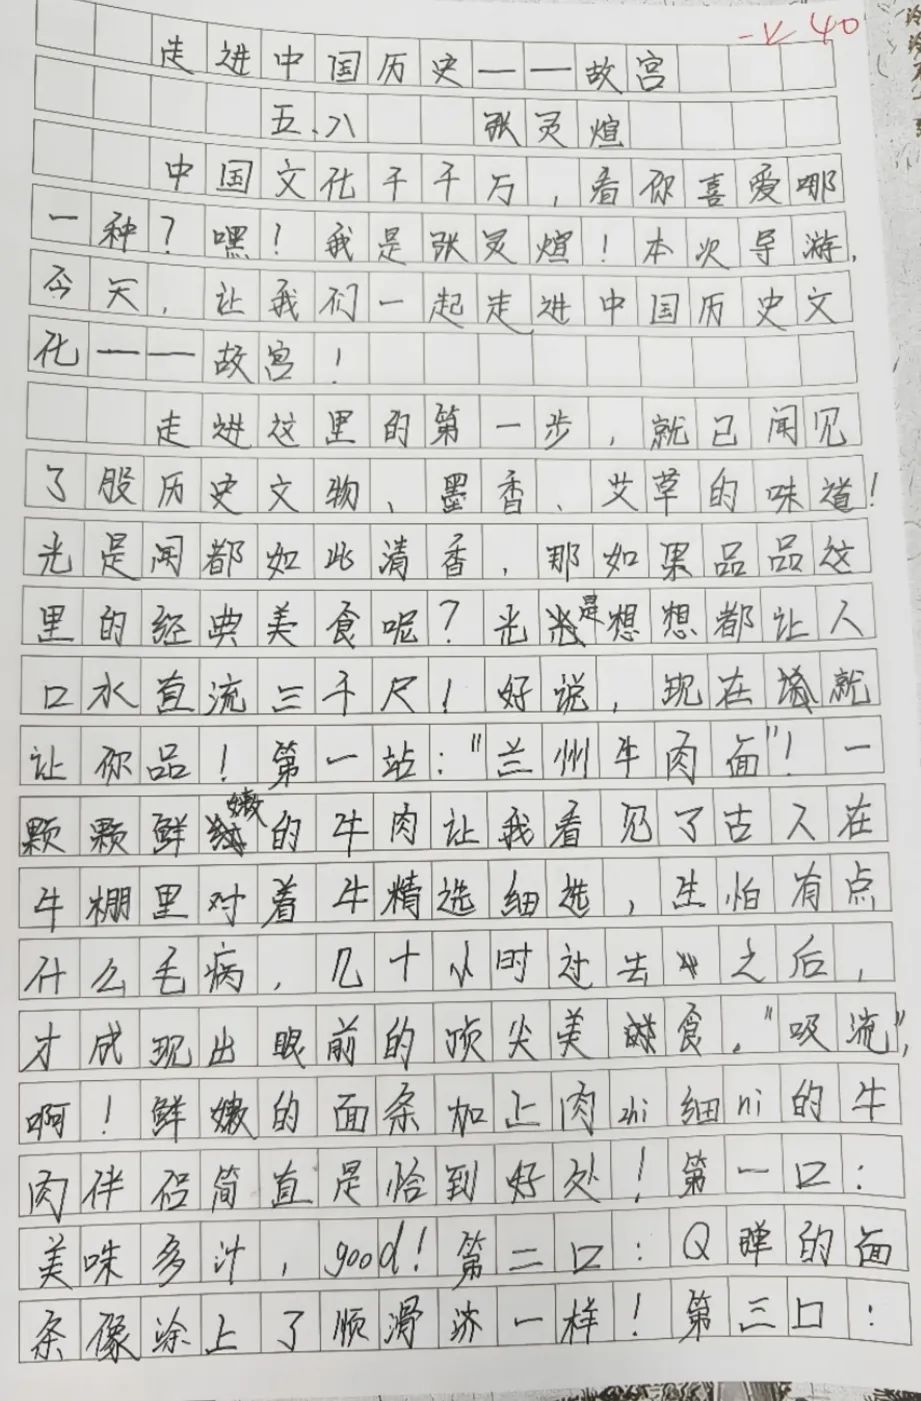 40
走进中国历史——故宫
五.八 张灵煊
中国文化千千万，看你喜爱哪
一种？嘿！我是张灵煊！本次导游，
今天，让我们一起走进中国历史文
化——故宫！
走进这里的第一步，就已闻见
了股历史文物、墨香、艾草的味道！
光是闻都如此清香，那如果品品这
里的经典美食呢？光是想想都让人
口水直流三千尺！好说，现在就
让你品！第一站："兰州牛肉面"！一
颗颗鲜嫩的牛肉让我看见了古人在
牛棚里对着牛精选细选，生怕有点
什么毛病，几十小时过去之后，
才成现出眼前的顶尖美食。"吸流"，
啊！鲜嫩的面条加上肉zhi细ni的牛
肉伴侣简直是恰到好处！第一口：
美味多汁，good！第二口：Q弹的面
条像涂上了顺滑济一样！第三口：